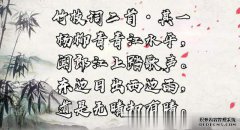 竹枝词二首·其一
杨柳青青江水平,
闻郎江上踏歌声。
东边日出西边雨,
道是无晴却有晴。